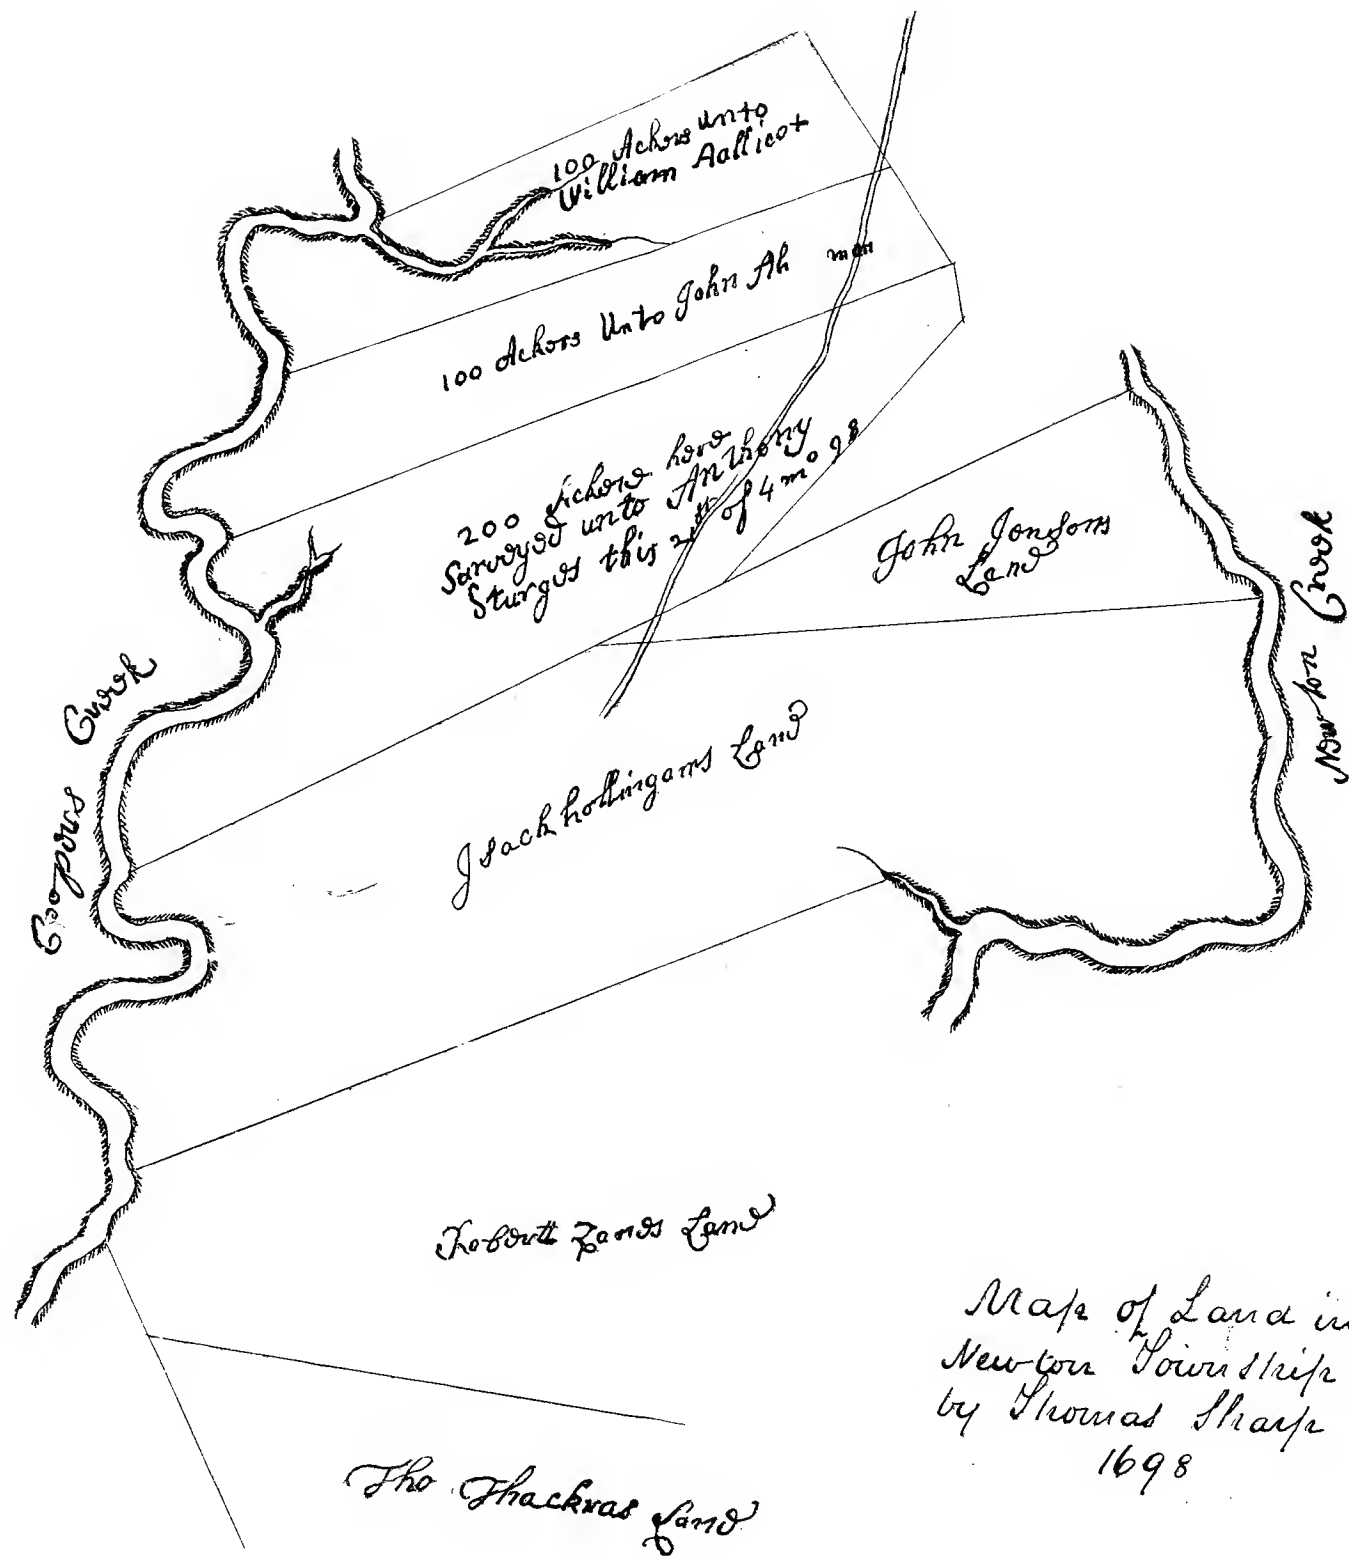 100 Achers unto
William Aallicot
100 Achers Unto John Ah man
200 Achers here
Surveyed unto Anthony
Sturges this 2th of 4 mo 98
John Jonsons
Land
Newton Creek
Coopers Creek
Isack hollingams Land
Robertt Zanes Land
Tho Thackras Land
Map of Land in
Newton Township
by Thomas Sharp
1698